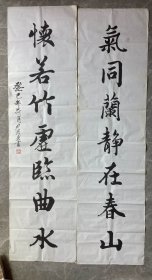 氣同蘭静在春山
懷若竹虛臨曲水